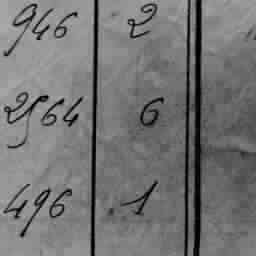 946 2
2564 6
496 1